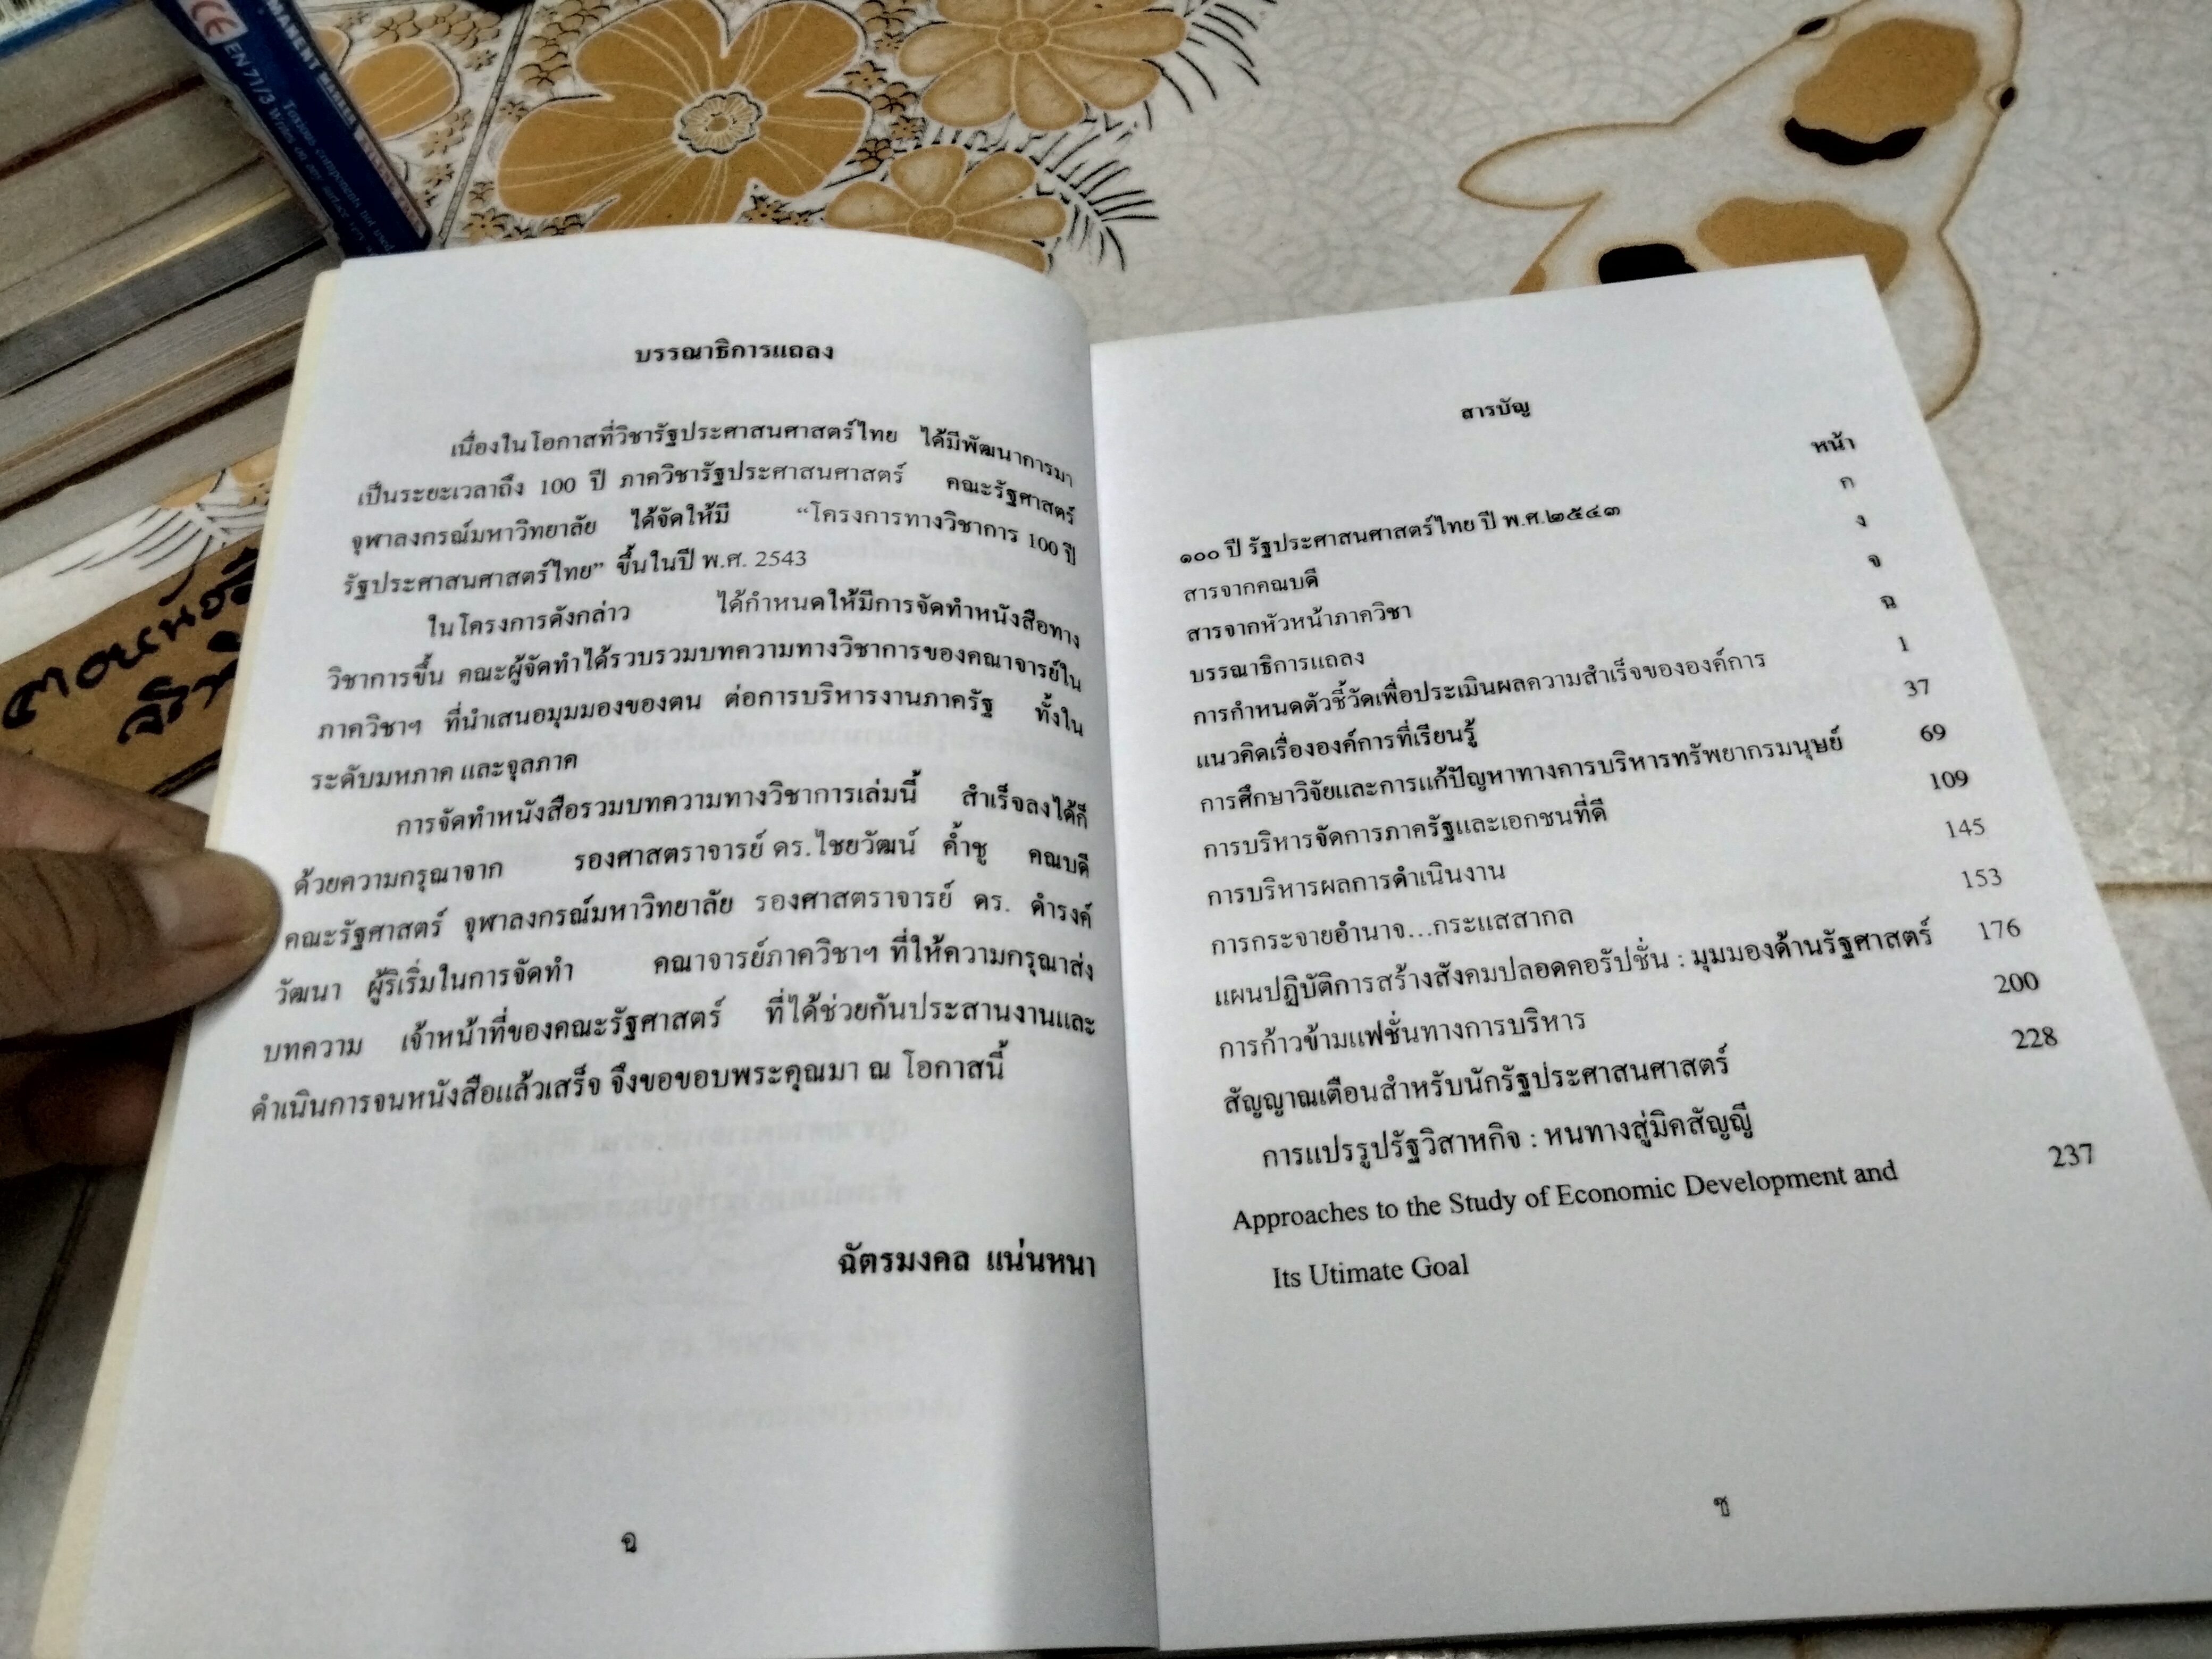 MANENT MARKER
CE EN 71/3 Writes on any surface
บรรณาธิการแถลง
เนื่องในโอกาสที่วิชารัฐประศาสนศาสตร์ไทย ได้มีพัฒนาการมา
เป็นระยะเวลาถึง 100 ปี ภาควิชารัฐประศาสนศาสตร์ คณะรัฐศาสตร์
จุฬาลงกรณ์มหาวิทยาลัย ได้จัดให้มี “โครงการทางวิชาการ 100 ปี
รัฐประศาสนศาสตร์ไทย” ขึ้นในปี พ.ศ. 2543
ในโครงการดังกล่าว ได้กำหนดให้มีการจัดทำหนังสือทาง
วิชาการขึ้น คณะผู้จัดทำได้รวบรวมบทความทางวิชาการของคณาจารย์ใน
ภาควิชาฯ ที่นำเสนอมุมมองของตน ต่อการบริหารงานภาครัฐ ทั้งใน
ระดับมหภาค และจุลภาค
การจัดทำหนังสือรวมบทความทางวิชาการเล่มนี้ สำเร็จลงได้ก็
ด้วยความกรุณาจาก รองศาสตราจารย์ ดร.ไชยวัฒน์ ค้ำชู คณบดี
คณะรัฐศาสตร์ จุฬาลงกรณ์มหาวิทยาลัย รองศาสตราจารย์ ดร. ดำรงค์
วัฒนา ผู้ริเริ่มในการจัดทำ คณาจารย์ภาควิชาฯ ที่ให้ความกรุณาส่ง
บทความ เจ้าหน้าที่ของคณะรัฐศาสตร์ ที่ได้ช่วยกันประสานงานและ
ดำเนินการจนหนังสือแล้วเสร็จ จึงขอขอบพระคุณมา ณ โอกาสนี้
ฉัตรมงคล แน่นหนา
ฉ
สารบัญ
หน้า
๑๐๐ ปี รัฐประศาสนศาสตร์ไทย ปี พ.ศ.๒๕๔๓ ก
สารจากคณบดี ง
สารจากหัวหน้าภาควิชา จ
บรรณาธิการแถลง ฉ
การกำหนดตัวชี้วัดเพื่อประเมินผลความสำเร็จขององค์การ 1
แนวคิดเรื่ององค์การที่เรียนรู้ 37
การศึกษาวิจัยและการแก้ปัญหาทางการบริหารทรัพยากรมนุษย์ 69
การบริหารจัดการภาครัฐและเอกชนที่ดี 109
การบริหารผลการดำเนินงาน 145
การกระจายอำนาจ...กระแสสากล 153
แผนปฏิบัติการสร้างสังคมปลอดคอรัปชั่น : มุมมองด้านรัฐศาสตร์ 176
การก้าวข้ามแฟชั่นทางการบริหาร 200
สัญญาณเตือนสำหรับนักรัฐประศาสนศาสตร์ 228
การแปรรูปรัฐวิสาหกิจ : หนทางสู่มิคสัญญี
Approaches to the Study of Economic Development and 237
Its Utimate Goal
ช